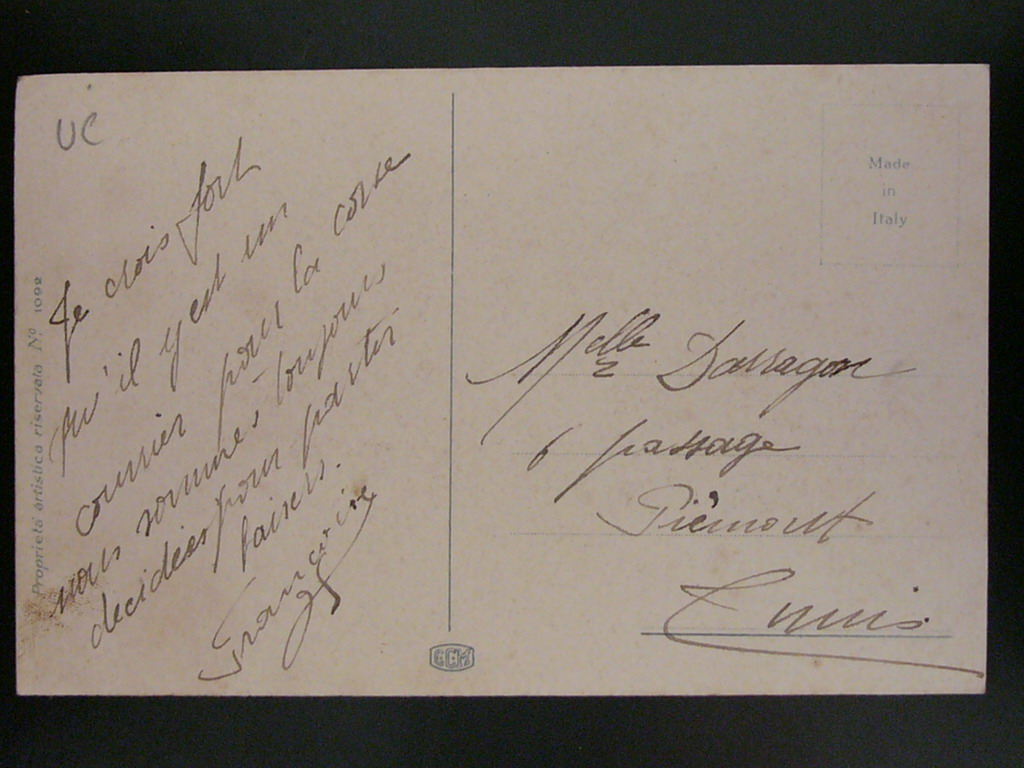 UC
Je crois fort
qu'il y est un
courrier pour la corse
nous sommes toujours
decidées pour partir
baisers.
Françoise
Proprietà artistica riservata Nº 1092
Made
in
Italy
Melle Darragon
6 passage
Piémont
Tunis.